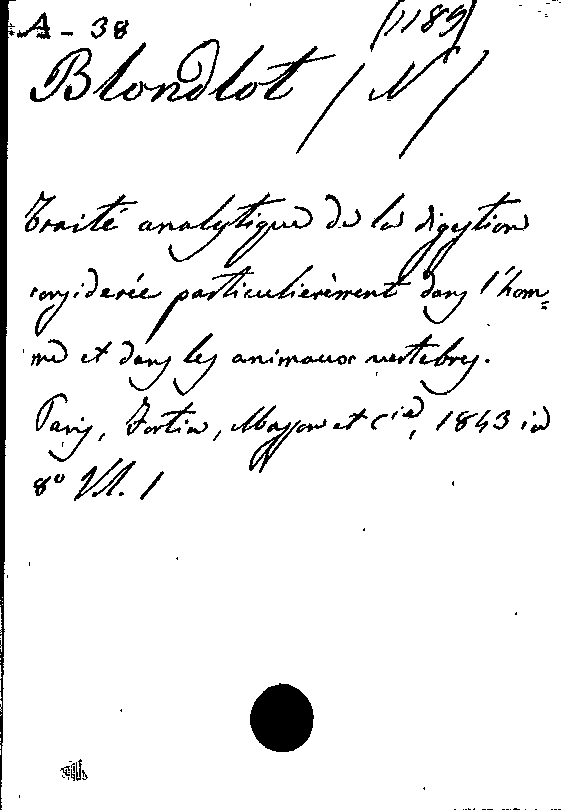 A - 38 (1189)
Blondlot (N)
Traité analytique de la digestion
considerée particulierèment dans l'hom=
me et dans les animaux vertebres.
Paris, Fortin, Masson et Cie, 1843 in
8º Vl. 1